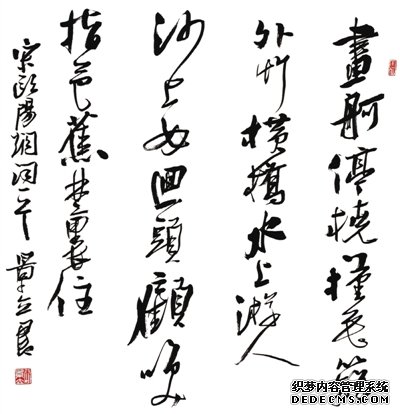 畫舸停橈槿花籬
外竹橫橋水上游人
沙上女迴頭顧笑
指芭蕉林裏住
宋歐陽炯詞一
织梦内容管理系统
DEDECMS.COM